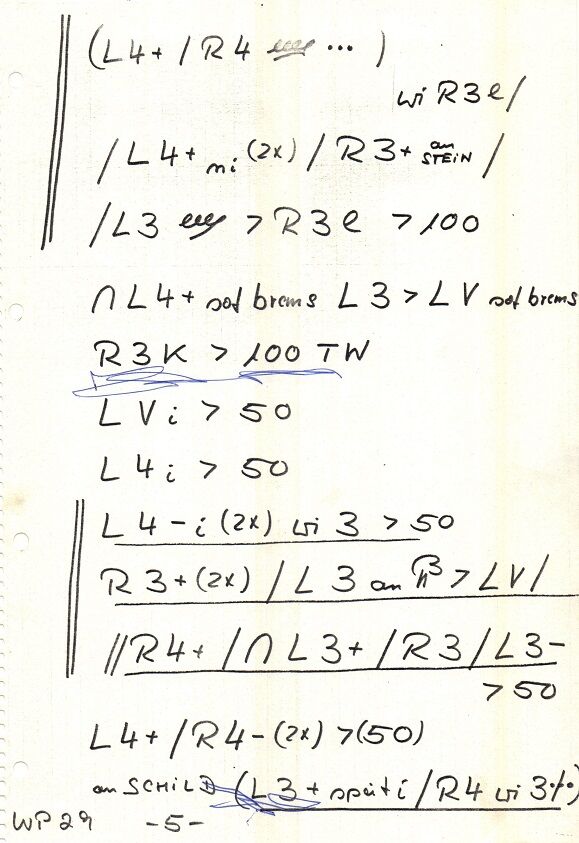 (L4+ /R4 ... )
wi R3e/
/L4+ ni (2x) / R3+ an STEiN /
/L3 > R3e > 100
∩L4+ sof brems L3 > LV sof brems
R3K > 100 TW
LVi > 50
L4i > 50
L4-i (2x) wi 3 > 50
R3+(2x) / L3 an > LV/
//R4+ /∩L3+ /R3/L3-
> 50
L4+ /R4-(2x) >(50)
an SCHILD (L3+ spät i /R4 wi 3
WP29 -5-